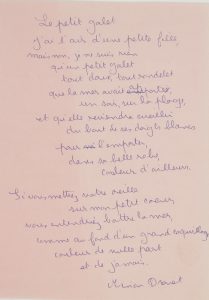 Le petit galet
J'ai l'air d'une petite fille,
mais non, je ne suis rien
qu'un petit galet
tout doux, tout rondelet
que la mer avait
un soir, sur la plage,
et qu'elle reviendra cueillir
du bout de ses doigts blancs
pour l'emporter,
dans sa belle robe,
couleur d'ailleurs.
Si vous mettez votre oreille
sur mon petit coeur,
vous entendrez battre la mer,
comme au fond d'un grand coquillage
couleur de nulle part
et de jamais.